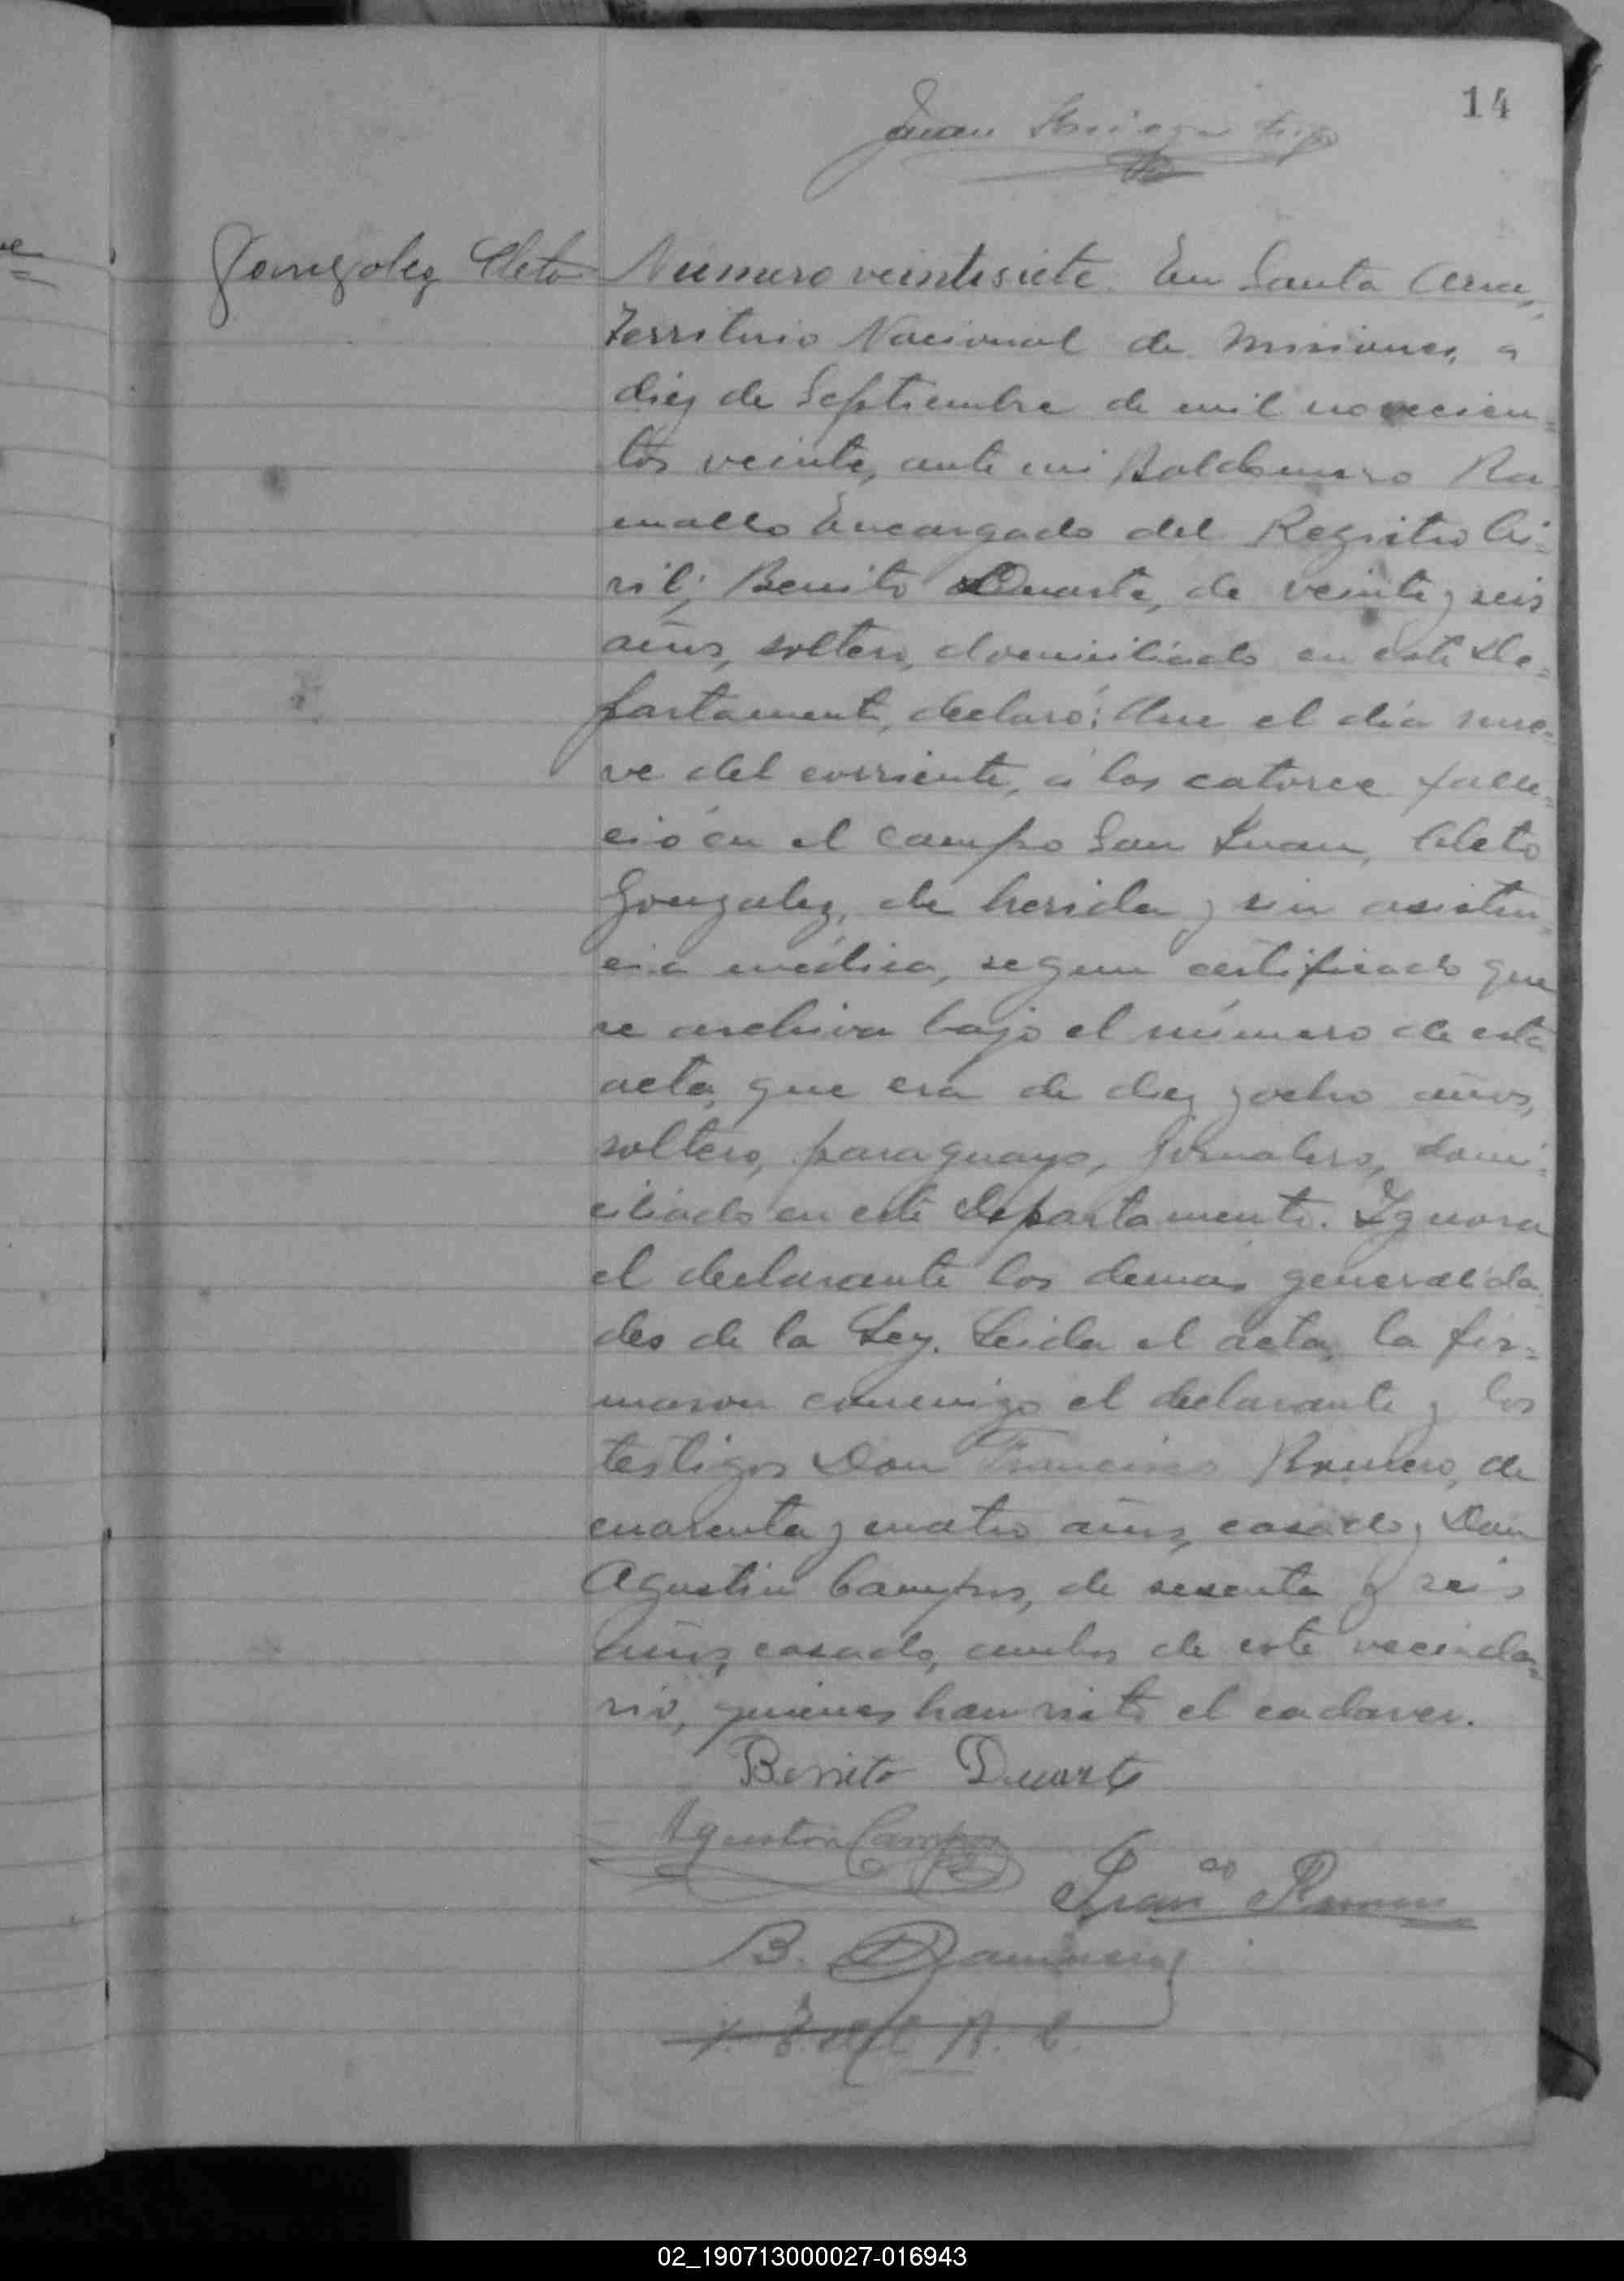 14
Juan
Gonzalez Cleto
Número veintisiete. En Santa Ana,
Territorio Nacional de Misiones, a
diez de Septiembre de mil novecien=
tos veinte, ante mi, Baldomero Ra
mallo Encargado del Registro Ci=
vil; Benito Duarte, de veinte y seis
años, soltero, domiciliado en este De=
partamento, declaró: Que el día nue=
ve del corriente, á las catorce falle=
ció en el campo San Juan, Cleto
Gonzalez, de herida y sin asisten=
cia médica, segun certificado que
se archiva bajo el número de esta
acta, que era de diez y ocho años,
soltero, paraguayo, jornalero, domi=
ciliado en este Departamento. Ignora
el declarante las demas generalida
des de la Ley. Leida el acta, la fir=
maron conmigo el declarante y los
testigos Don Francisco Romero, de
cuarenta y cuatro años, casado y Don
Agustin Campos, de sesenta y seis
años, casado, ambos de este vecinda=
rio, quienes han visto el cadaver.
Benito Duarte
Agustin Campos
Fran co
B.
02_190713000027-016943